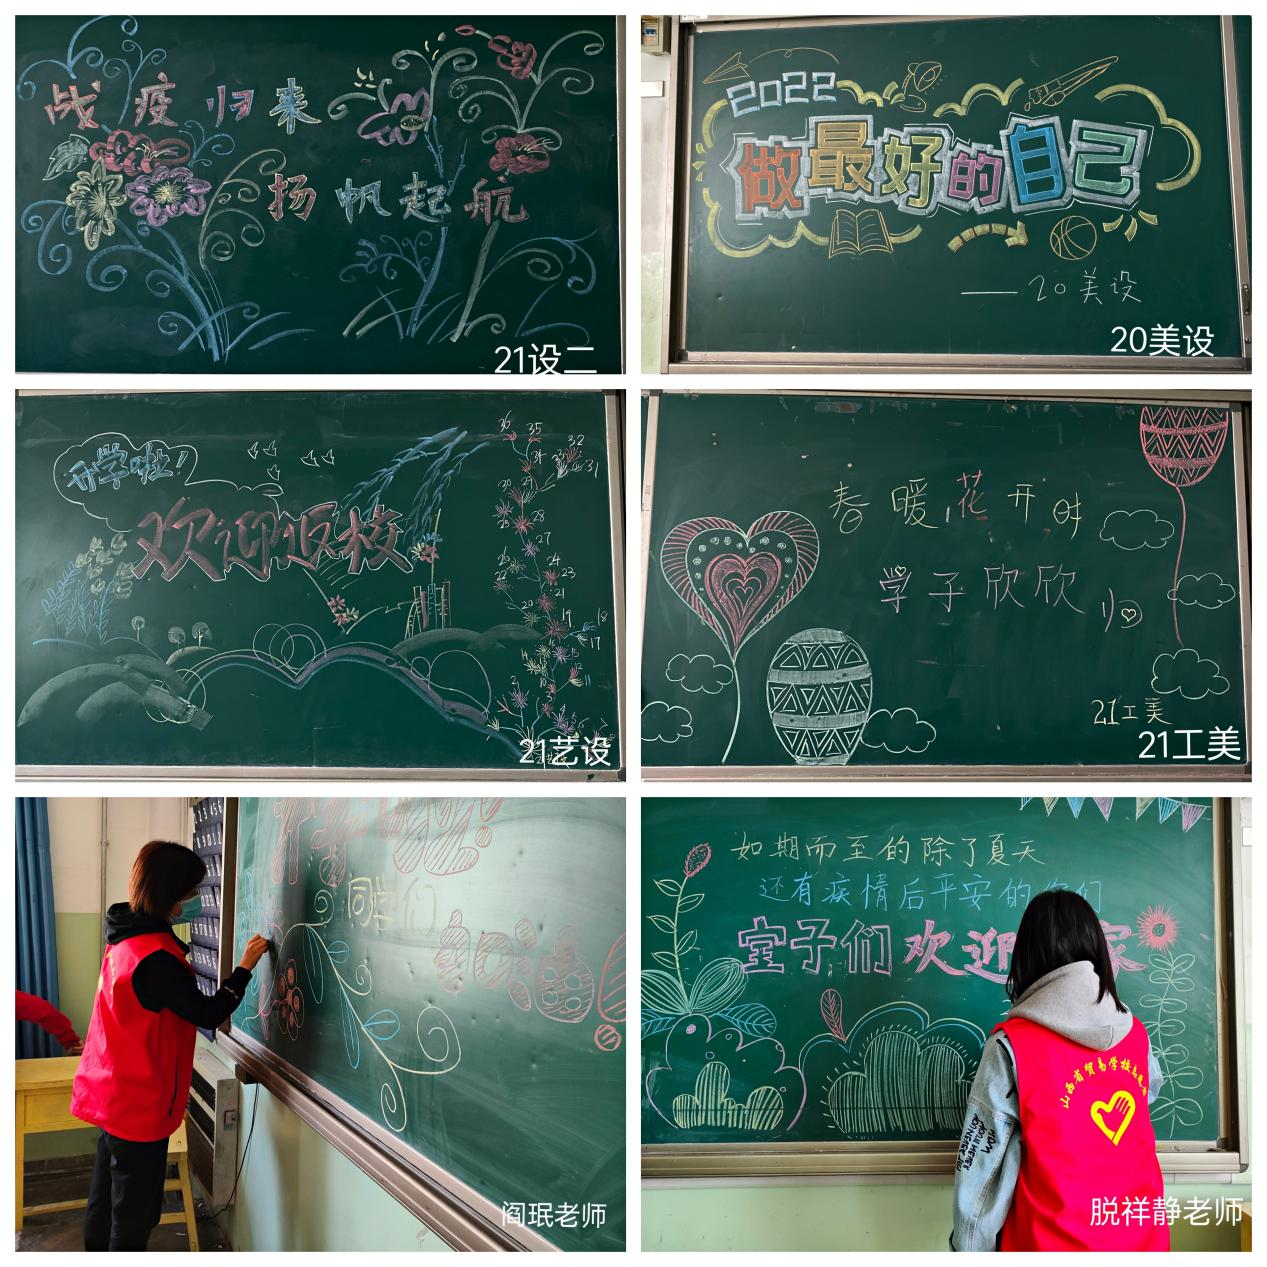 战疫归来
扬帆起航
21设二
2022
做最好的自己
——20美设
20美设
开学啦！
欢迎返校
36
35
34
32
31
28
27
24
23
21
20
19
18
17
21艺设
春暖花开时
学子欣欣归
21工美
21工美
同学们
阎珉老师
如期而至的除了夏天
还有疫情后平安的你们
宝子们欢迎家
山西省贸易学校志愿
脱祥静老师